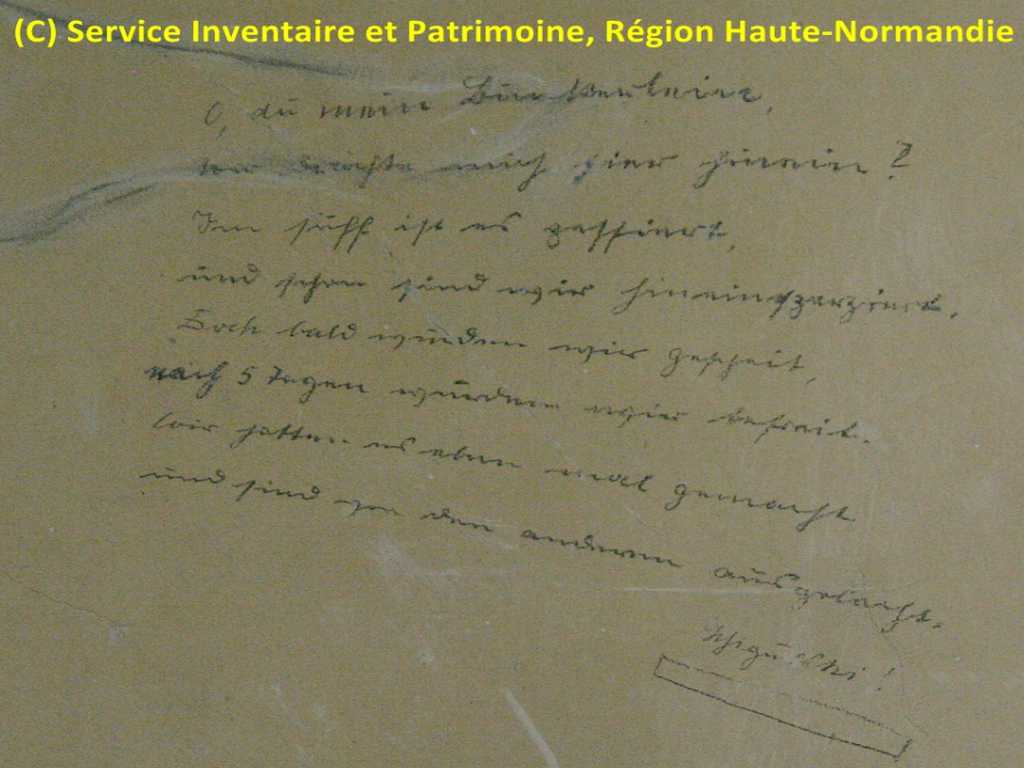 (C) Service Inventaire et Patrimoine, Région Haute-Normandie
O, du mein Bunkerlein,
wer brachte mich hier hinein?
Im suff ist es passiert,
und schon sind wir hineinspaziert.
Doch bald wurden wir gescheit,
nach 5 Tagen wurden wir befreit.
Wir hatten es eben mal gemacht
und sind von den anderen ausgelacht.